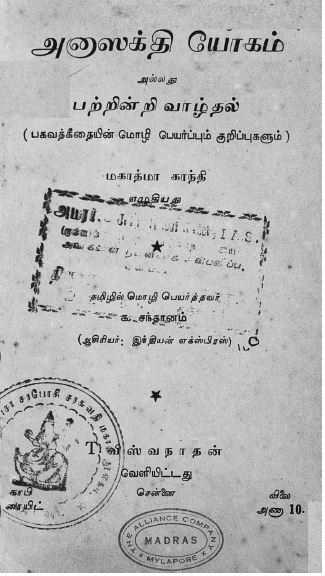 அனாஸக்தி யோகம்
அல்லது
பற்றின்றி வாழ்தல்
( பகவத்கீதையின் மொழி பெயர்ப்பும் குறிப்புகளும் )
மகாத்மா காந்தி
எழுகியது
தமிழில் மொழி பெயர்த்தவர்
க. சந்தானம்
(ஆசிரியர்: இந்தியன் எக்ஸ்பிரஸ்)
T. விஸ்வநாதன்
வெளியிட்டது
காபி
ரைட்
சென்னை
விலை
அணா 10.
சரபோஜி சரசுவதி
THE ALLIANCE COMPANY
MADRAS
MYLAPORE